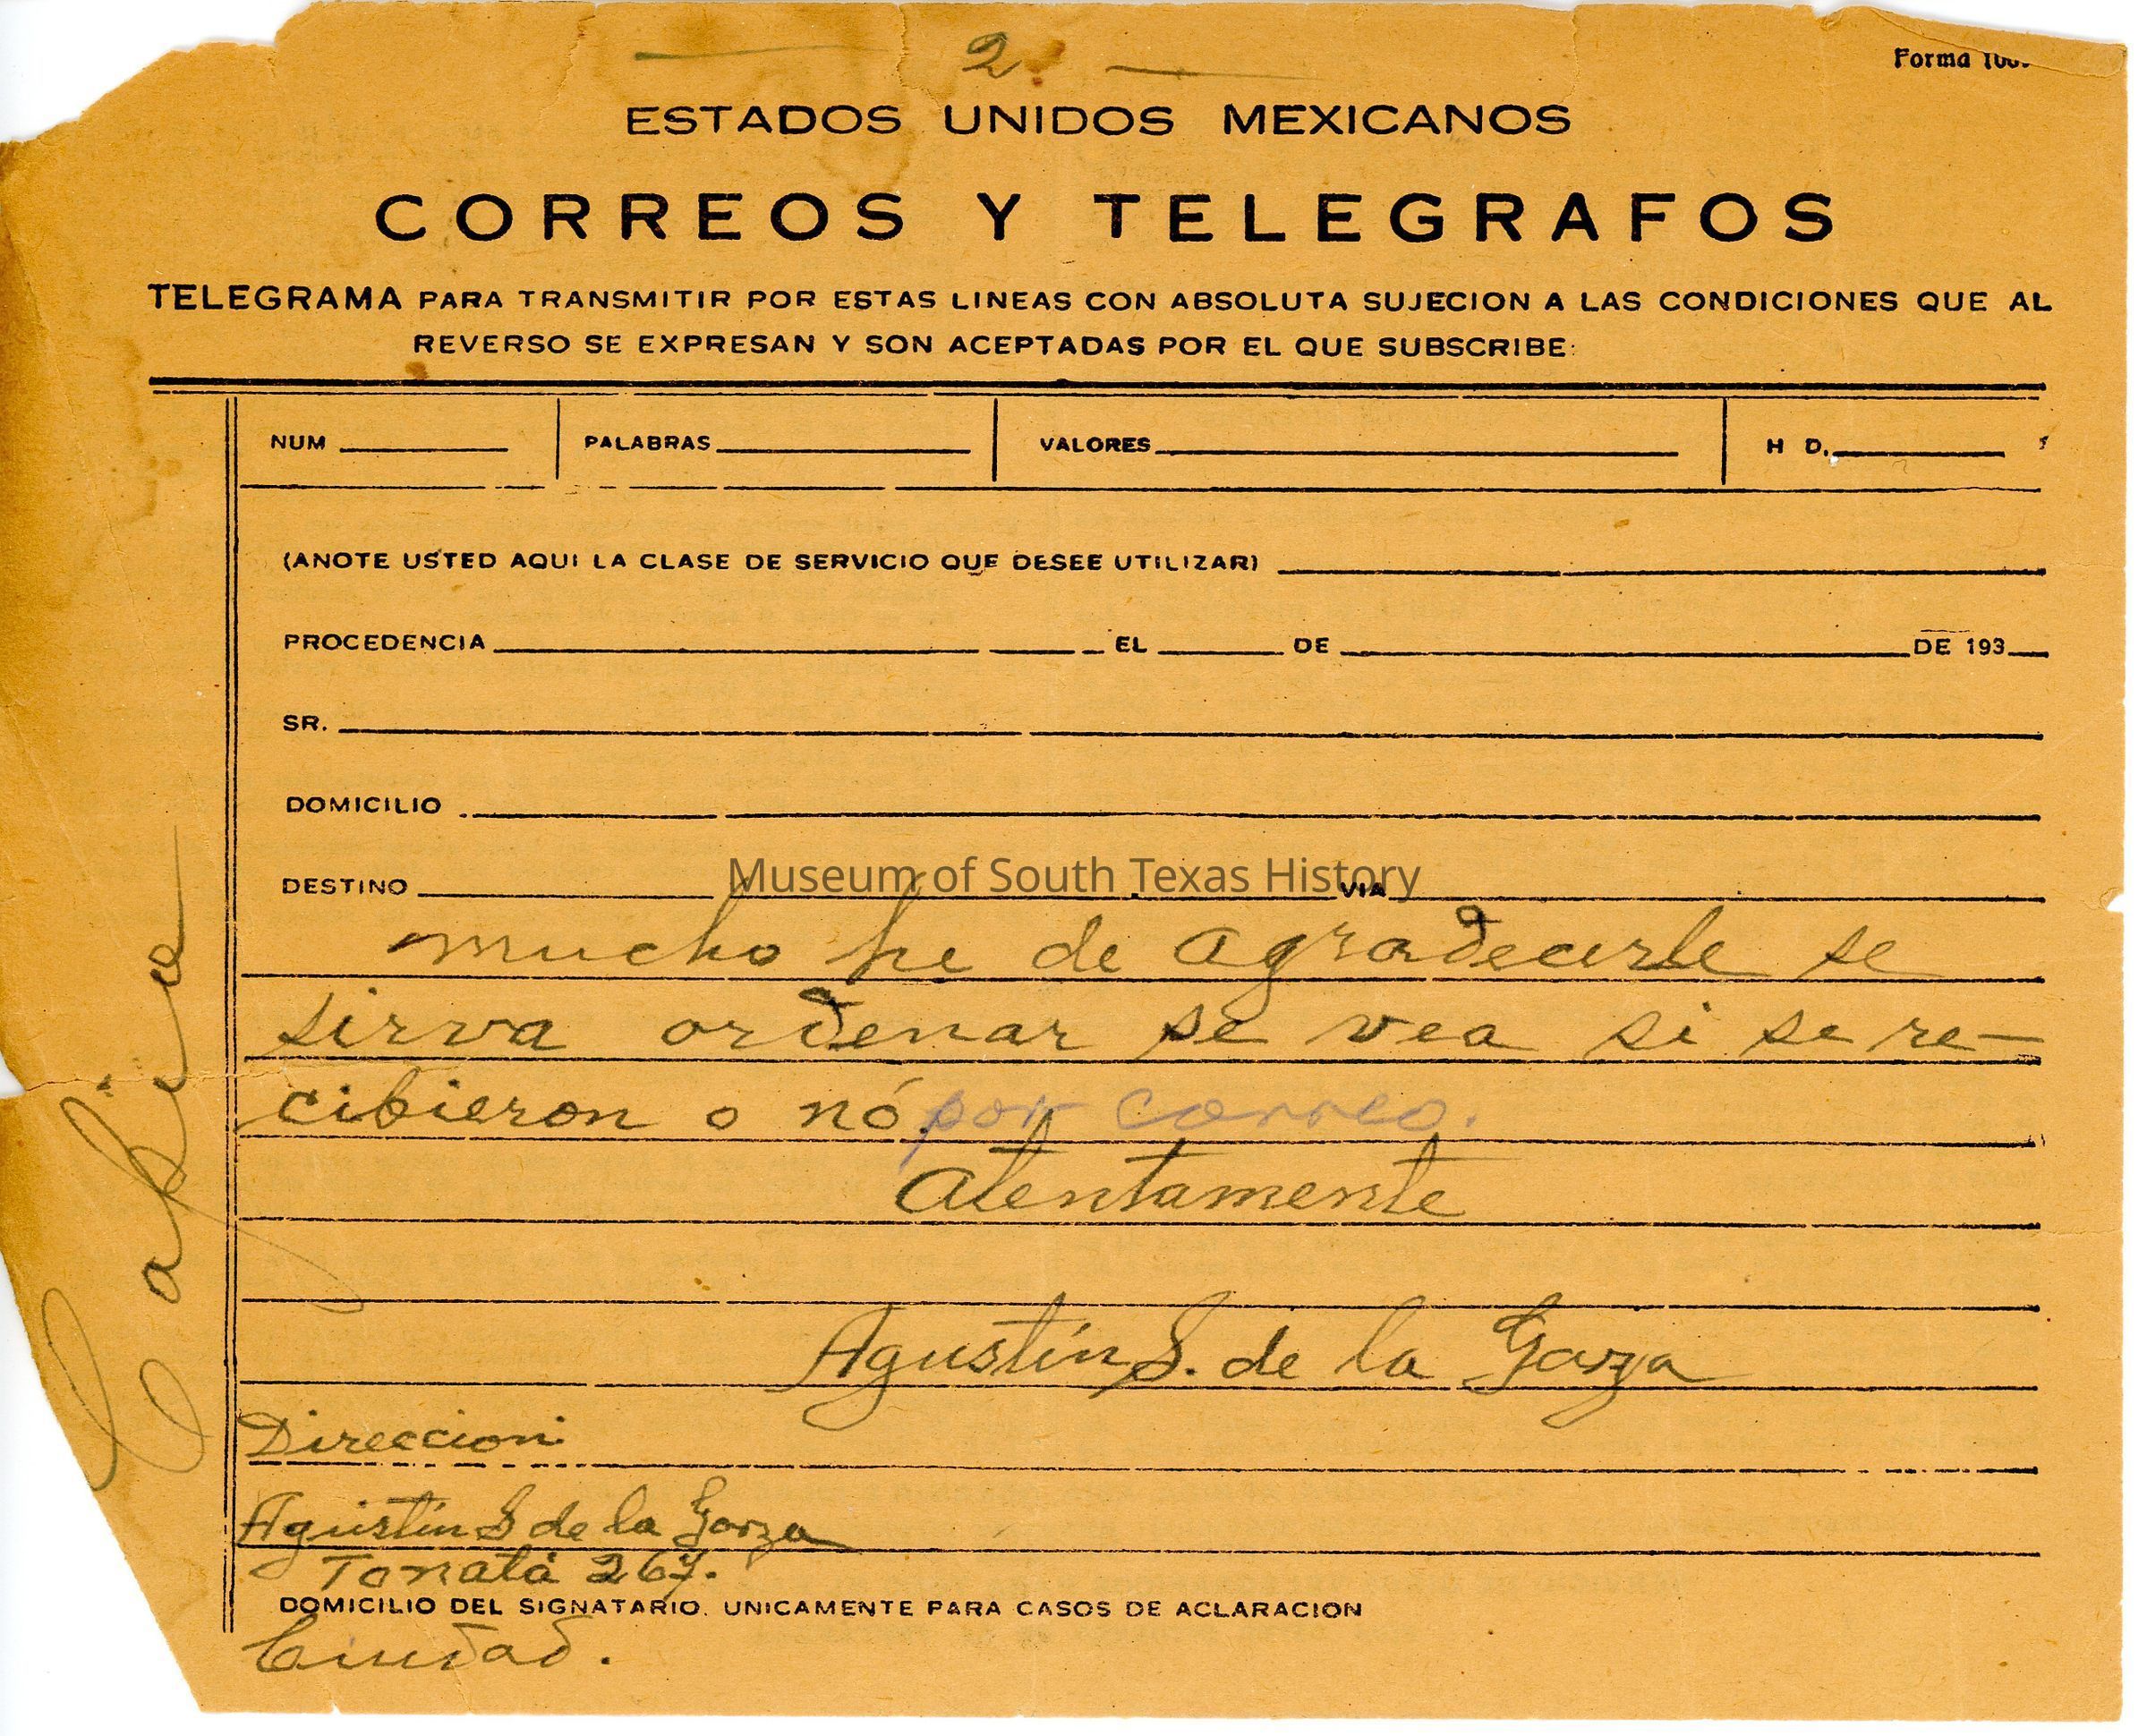 2.
Forma
ESTADOS UNIDOS MEXICANOS
CORREOS Y TELEGRAFOS
TELEGRAMA PARA TRANSMITIR POR ESTAS LINEAS CON ABSOLUTA SUJECION A LAS CONDICIONES QUE AL
REVERSO SE EXPRESAN Y SON ACEPTADAS POR EL QUE SUBSCRIBE:
NUM PALABRAS VALORES H D.
(ANOTE USTED AQUI LA CLASE DE SERVICIO QUE DESEE UTILIZAR)
PROCEDENCIA EL DE DE 193
SR.
DOMICILIO
DESTINO VIA
Museum of South Texas History
mucho he de agradecerle se
sirva ordenar se vea si se re-
cibieron o nó. por correo.
Atentamente
Agustín S. de la Garza
Direccion:
Agustin S de la Garza
Tonalá 267.
DOMICILIO DEL SIGNATARIO. UNICAMENTE PARA CASOS DE ACLARACION
Ciudad.